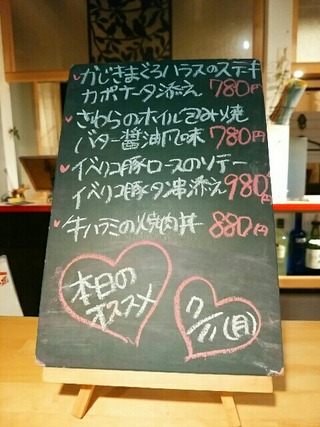 ♥かじきまぐろハラスのステーキ
カポナータ添え 780円
♥さわらのホイル包み焼
バター醤油風味 780円
♥イベリコ豚ロースのソテー
イベリコ豚タン串添え 980円
♥牛ハラミの焼肉丼 880円
本日の
オススメ
7/11(月)